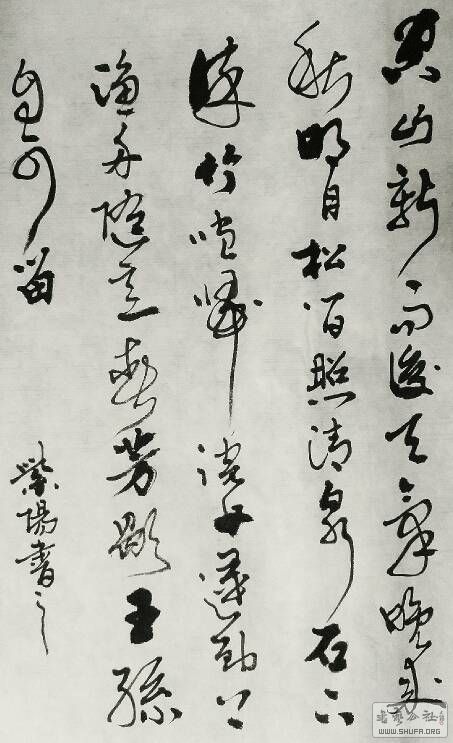 空山新雨後天氣晚來
秋明月松間照清泉石上
流竹喧歸浣女蓮動下
漁舟隨意春芳歇王孫
自可留
書之
書藝公社
WWW.SHUFA.ORG